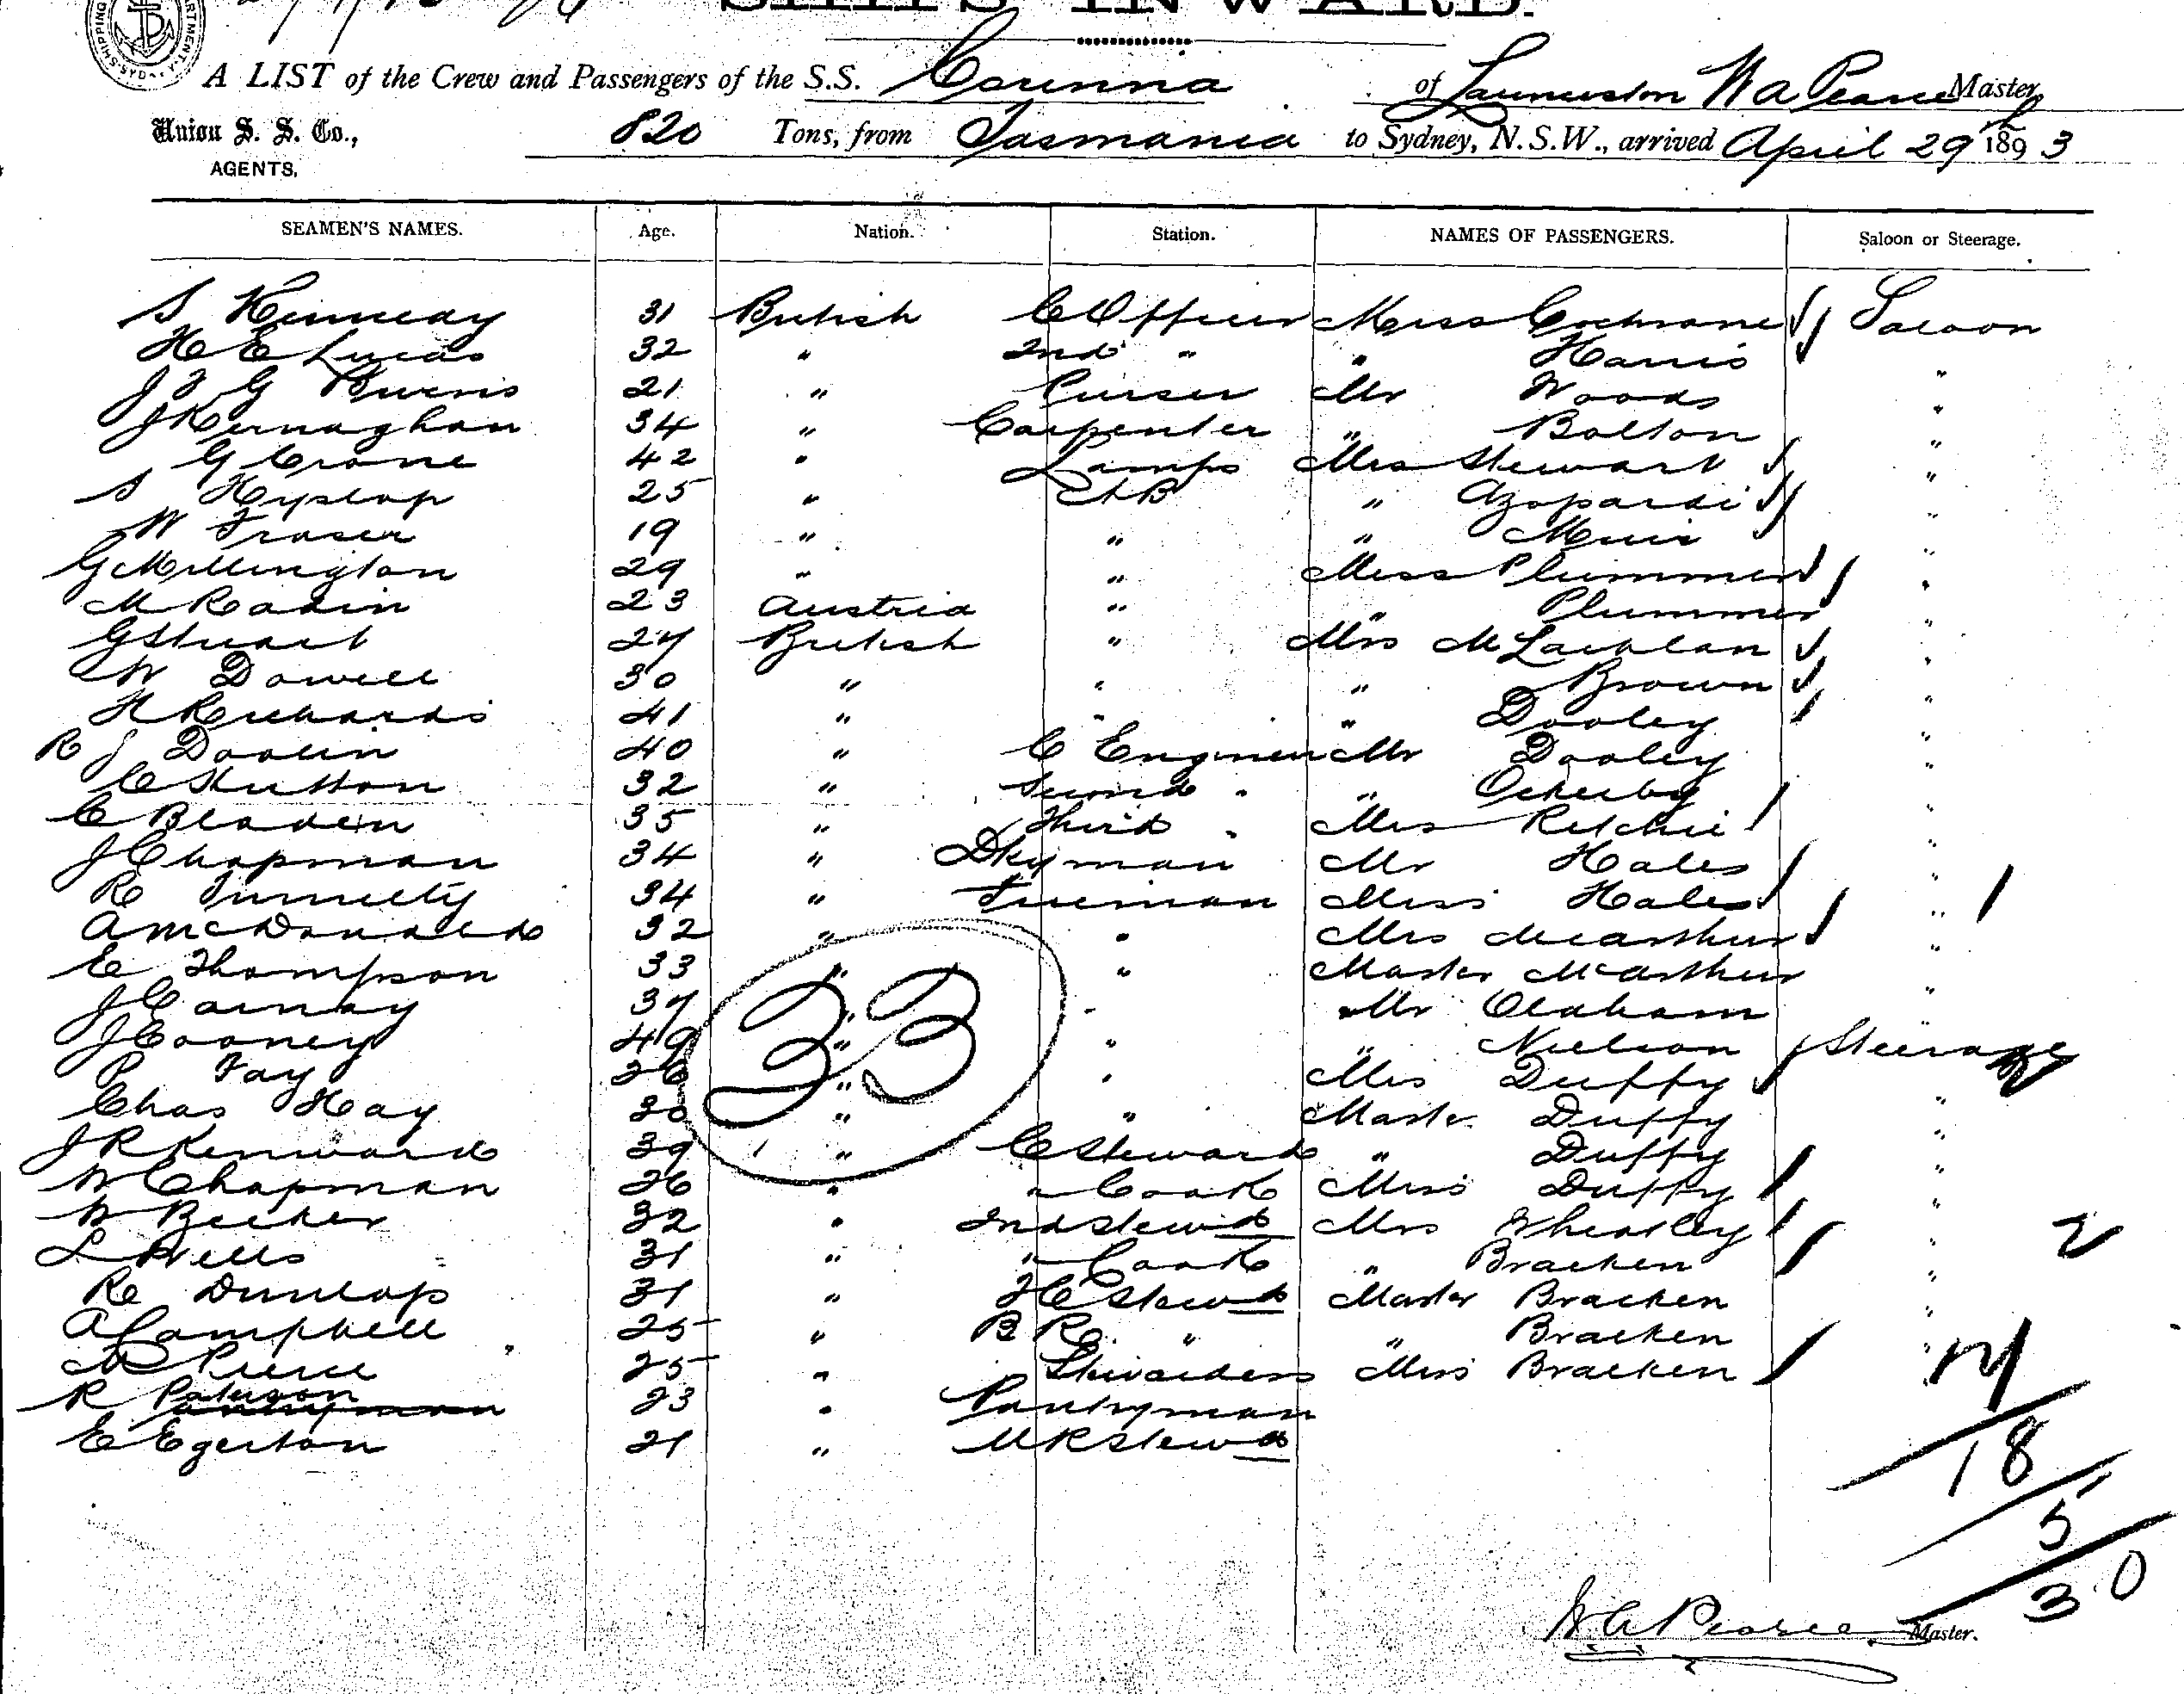 SHIPS INWARD.
A LIST of the Crew and Passengers of the S.S. Corinna of Launceston W A Pearce Master,
Union S. S. Co., 820 Tons, from Tasmania to Sydney, N.S.W., arrived April 29th 1893
AGENTS,
SEAMEN'S NAMES. Age. Nation. Station. NAMES OF PASSENGERS. Saloon or Steerage.
S Kennedy 31 British C Officer Miss Cochrane Saloon
H E Lucas 32 " 2nd " " Harris "
J G Burns 21 " Purser Mr Woods "
J Kernaghan 34 " Carpenter " Bolton "
G Crane 42 " Lamps Mrs Stewart "
S Hyslop 25 " AB " Azopardi "
W Fraser 19 " " " Muir "
G Millington 29 " " Miss Plummer "
M Radin 23 Austria " " Plummer "
G Stuart 27 British " Mrs McLachlan "
W Dowell 30 " " " Brown "
H Richards 41 " " " Dooley "
R J Doolin 40 " C Engineer Mr Dooley "
C Hutton 32 " Second " " Ockerby "
C Bladen 35 " Third " Mrs Ritchie "
J Chapman 34 " Dkyman Mr Hales "
R 34 " Fireman Miss Hales "
A McDonald 32 " " Mrs McArthur "
E Thompson 33 " " Master McArthur
J Carnay 37 " " Mr Oldham "
J Cooney 49 " " " Nielson Steerage
P Fay 26 " " Mrs Duffy
Chas Hay 30 " " Master Duffy "
J R Kenward 39 " C Steward " Duffy "
W Chapman 26 " " Cook Miss Duffy "
W Becker 32 " 2nd Stewd Mrs Wheatley "
L Wells 31 " " Cook " Bracken "
R Dunlop 31 " F C Stewd Master Bracken "
A Campbell 25 " B R " " Bracken "
M Pierce 25 " Stewardess Miss Bracken "
R Paterson 23 " Pantryman
E Egerton 21 " M R Stewd
33
2
18
5
30
W A Pearce Master.